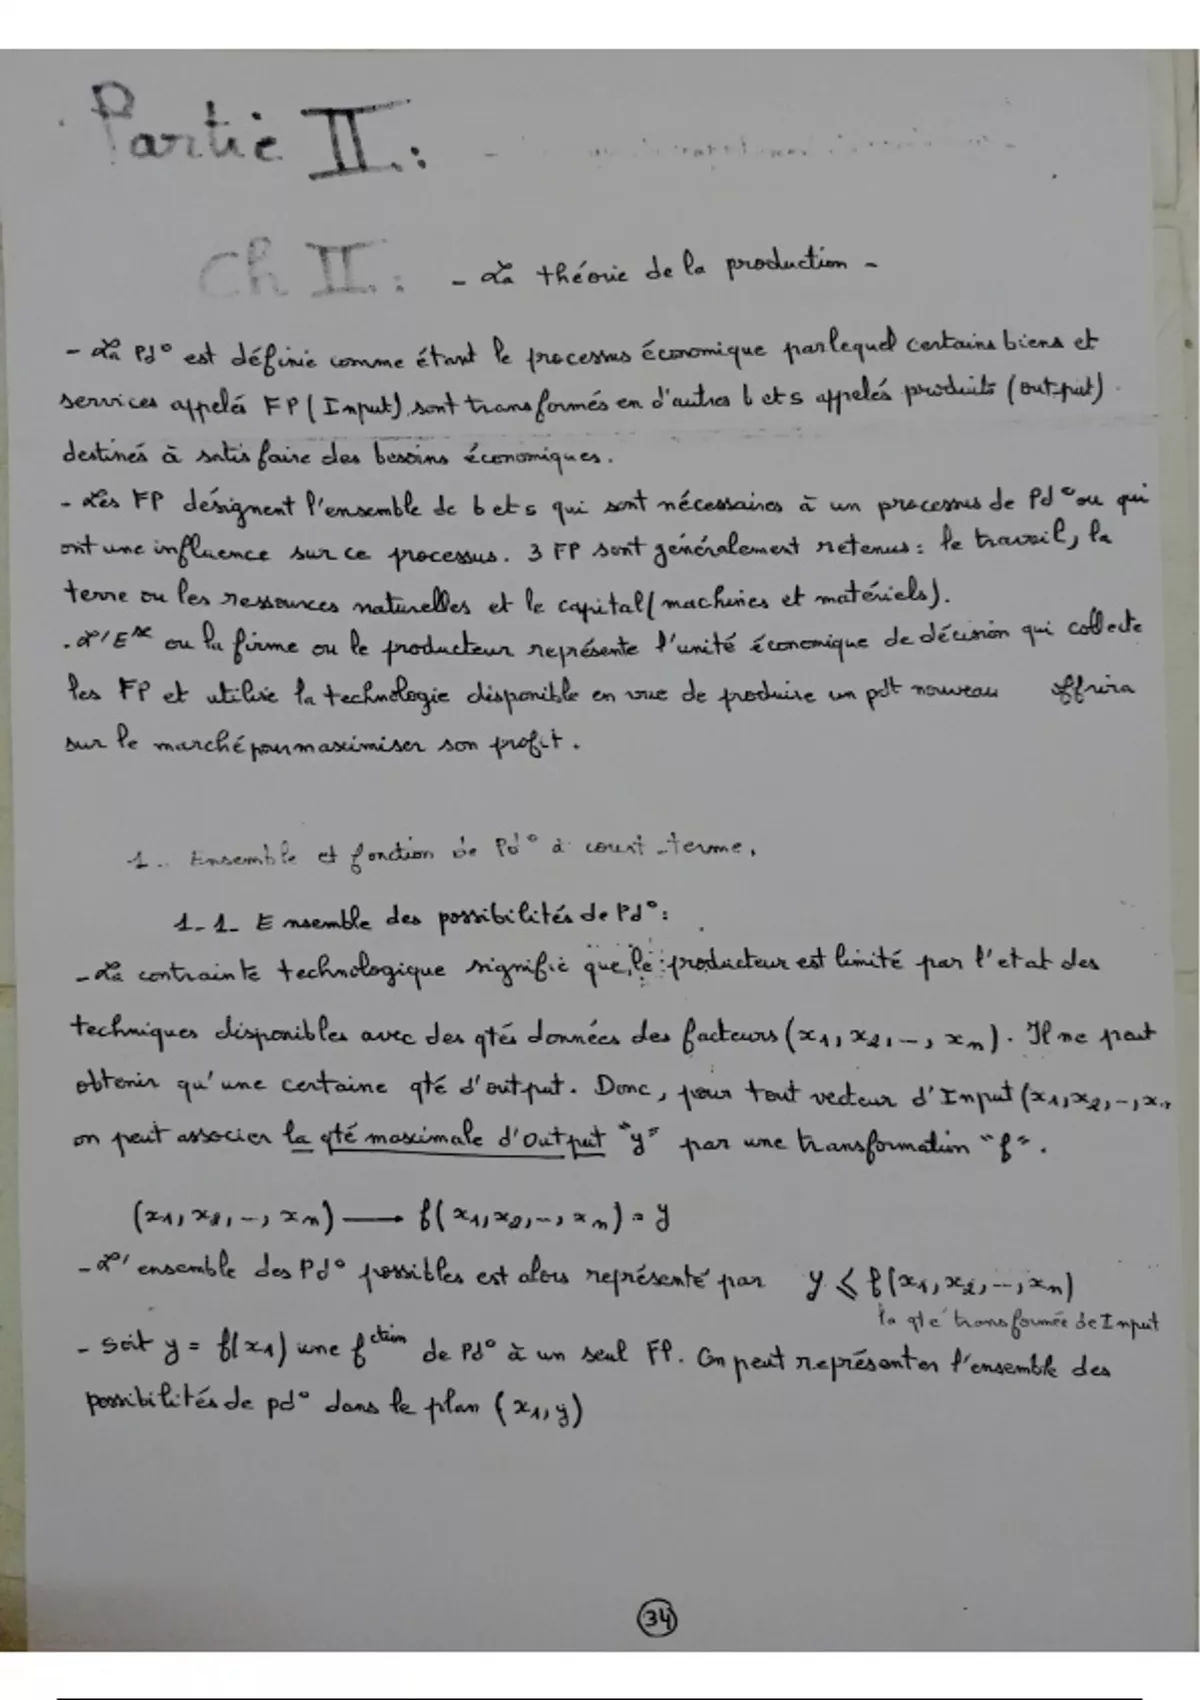 Partie II :
Ch II : - La théorie de la production -
- La Pd° est définie comme étant le processus économique par lequel certains biens et
services appelés FP (Input) sont transformés en d'autres b et s appelés produits (output)
destinés à satisfaire des besoins économiques.
- Les FP désignent l'ensemble de b et s qui sont nécessaires à un processus de Pd° ou qui
ont une influence sur ce processus. 3 FP sont généralement retenus : le travail, la
terre ou les ressources naturelles et le capital (machines et matériels).
. L'Ese ou la firme ou le producteur représente l'unité économique de décision qui collecte
les FP et utilise la technologie disponible en vue de produire un pdt nouveau offrira
sur le marché pour maximiser son profit.
1 - Ensemble et fonction de Pd° à court-terme.
1-1- Ensemble des possibilités de Pd° :
- La contrainte technologique signifie que le producteur est limité par l'etat des
techniques disponibles avec des qtés données des facteurs (x1, x2, -, xn). Il ne peut
obtenir qu'une certaine qté d'output. Donc, pour tout vecteur d'Input (x1, x2, -, xn
on peut associer la qté maximale d'Output "y" par une transformation "f".
(x1, x2, -, xn) ⟶ f(x1, x2, -, xn) = y
- L'ensemble des Pd° possibles est alors représenté par y ⩽ f(x1, x2, -, xn)
la qté transformée de Input
- Soit y = f(x1) une fction de Pd° à un seul FP. On peut représenter l'ensemble des
possibilités de pd° dans le plan (x1, y)
34